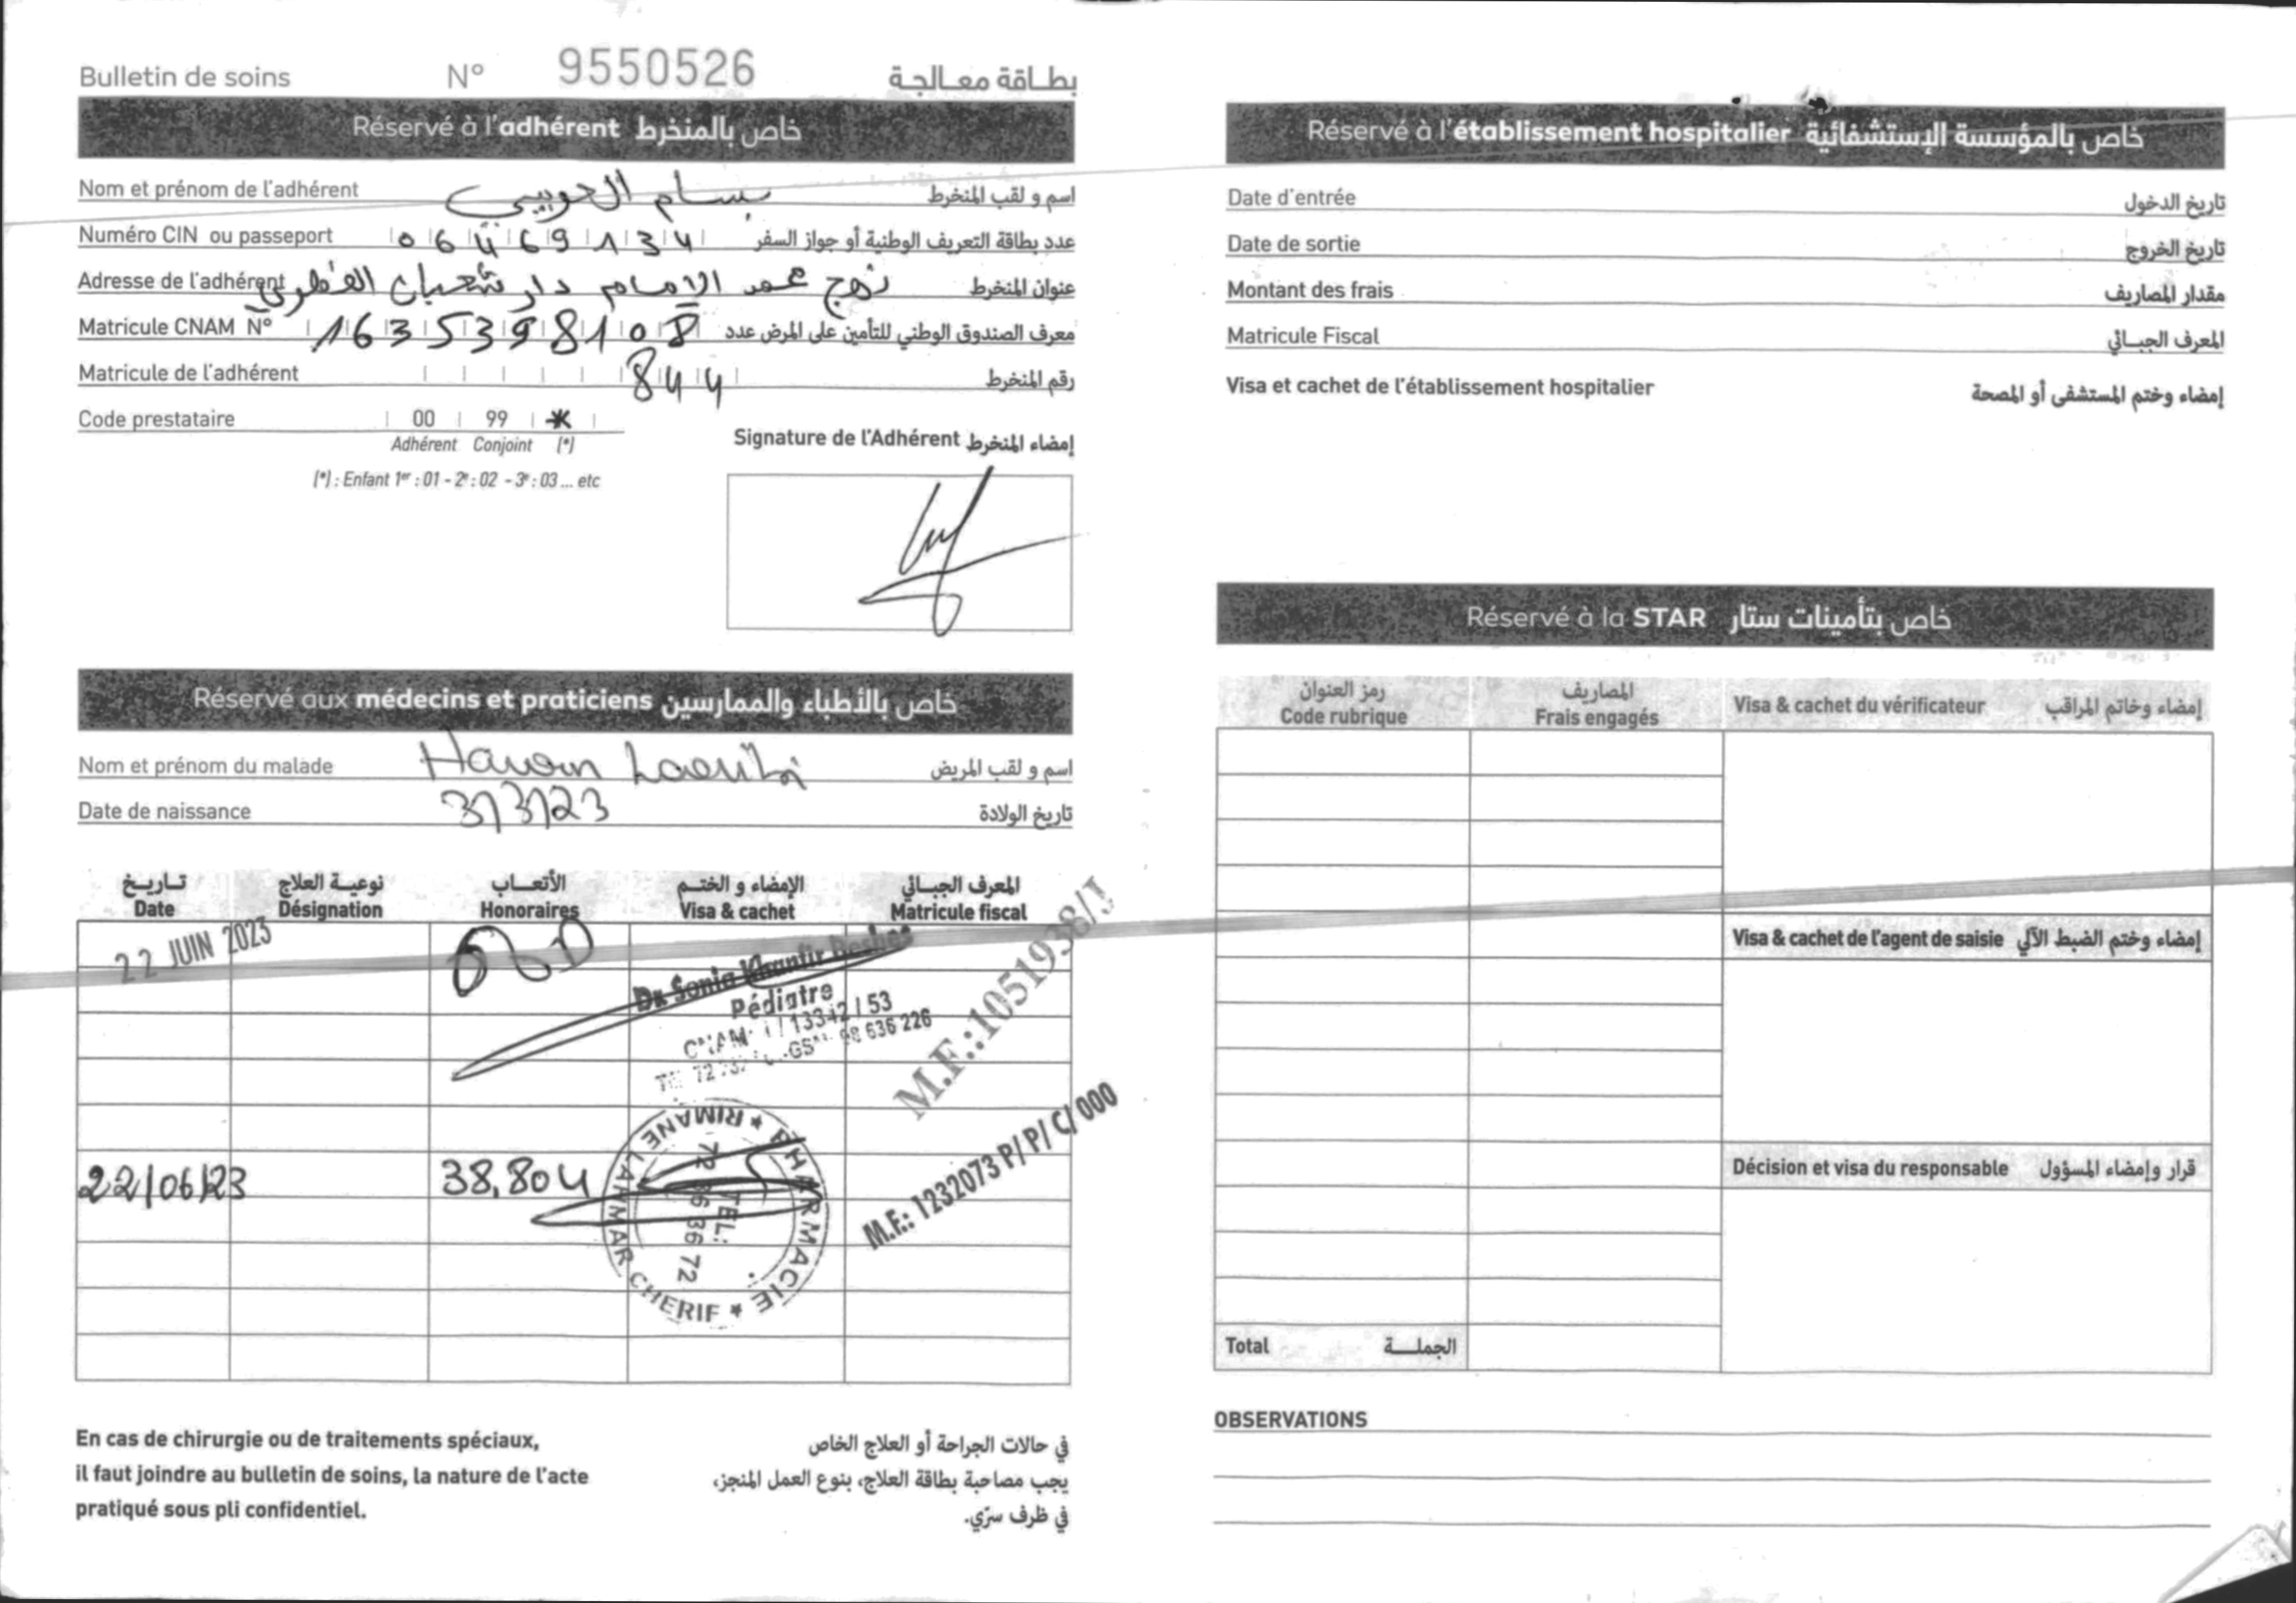 Bulletin de soins N° 9550526 بطاقة معالجة
Réservé à l'adhérent خاص بالمنخرط
Nom et prénom de l'adhérent بسام اسم و لقب المنخرط
Numéro CIN ou passeport 06469134 عدد بطاقة التعريف الوطنية أو جواز السفر
Adresse de l'adhérent نهج عمر الامام دار شعبان الفهري عنوان المنخرط
Matricule CNAM N° 1635398108 معرف الصندوق الوطني للتأمين على المرض عدد
Matricule de l'adhérent 844 رقم المنخرط
Code prestataire 00 99 *
Adhérent Conjoint (*)
(*) : Enfant 1er : 01 - 2e : 02 - 3e : 03 ... etc
Signature de l'Adhérent إمضاء المنخرط
Réservé aux médecins et praticiens خاص بالأطباء والممارسين
Nom et prénom du malade اسم و لقب المريض
Date de naissance 3/3/23 تاريخ الولادة
تاريخ نوعية العلاج الأتعاب الإمضاء و الختم المعرف الجبائي
Date Désignation Honoraires Visa & cachet Matricule fiscal
22 JUIN 2023
Dr Sonia Khantir
Pédiatre
CNAM: 1 / 13342 / 53
GSM: 98 636 226
M.F.:1051938/J
22/06/23 38,804
PHARMACIE * RIMANE LAMMAR CHERIF *
TEL:
72 36 36 72
M.F.: 1232073 P/ P/ C/ 000
En cas de chirurgie ou de traitements spéciaux,
il faut joindre au bulletin de soins, la nature de l'acte
pratiqué sous pli confidentiel.
في حالات الجراحة أو العلاج الخاص
يجب مصاحبة بطاقة العلاج، بنوع العمل المنجز،
في ظرف سرّي.
Réservé à l'établissement hospitalier خاص بالمؤسسة الإستشفائية
Date d'entrée تاريخ الدخول
Date de sortie تاريخ الخروج
Montant des frais مقدار المصاريف
Matricule Fiscal المعرف الجبائي
Visa et cachet de l'établissement hospitalier إمضاء وختم المستشفى أو المصحة
Réservé à la STAR خاص بتأمينات ستار
رمز العنوان المصاريف
Code rubrique Frais engagés Visa & cachet du vérificateur إمضاء وخاتم المراقب
Visa & cachet de l'agent de saisie إمضاء وختم الضبط الآلي
Décision et visa du responsable قرار وإمضاء المسؤول
Total الجملة
OBSERVATIONS